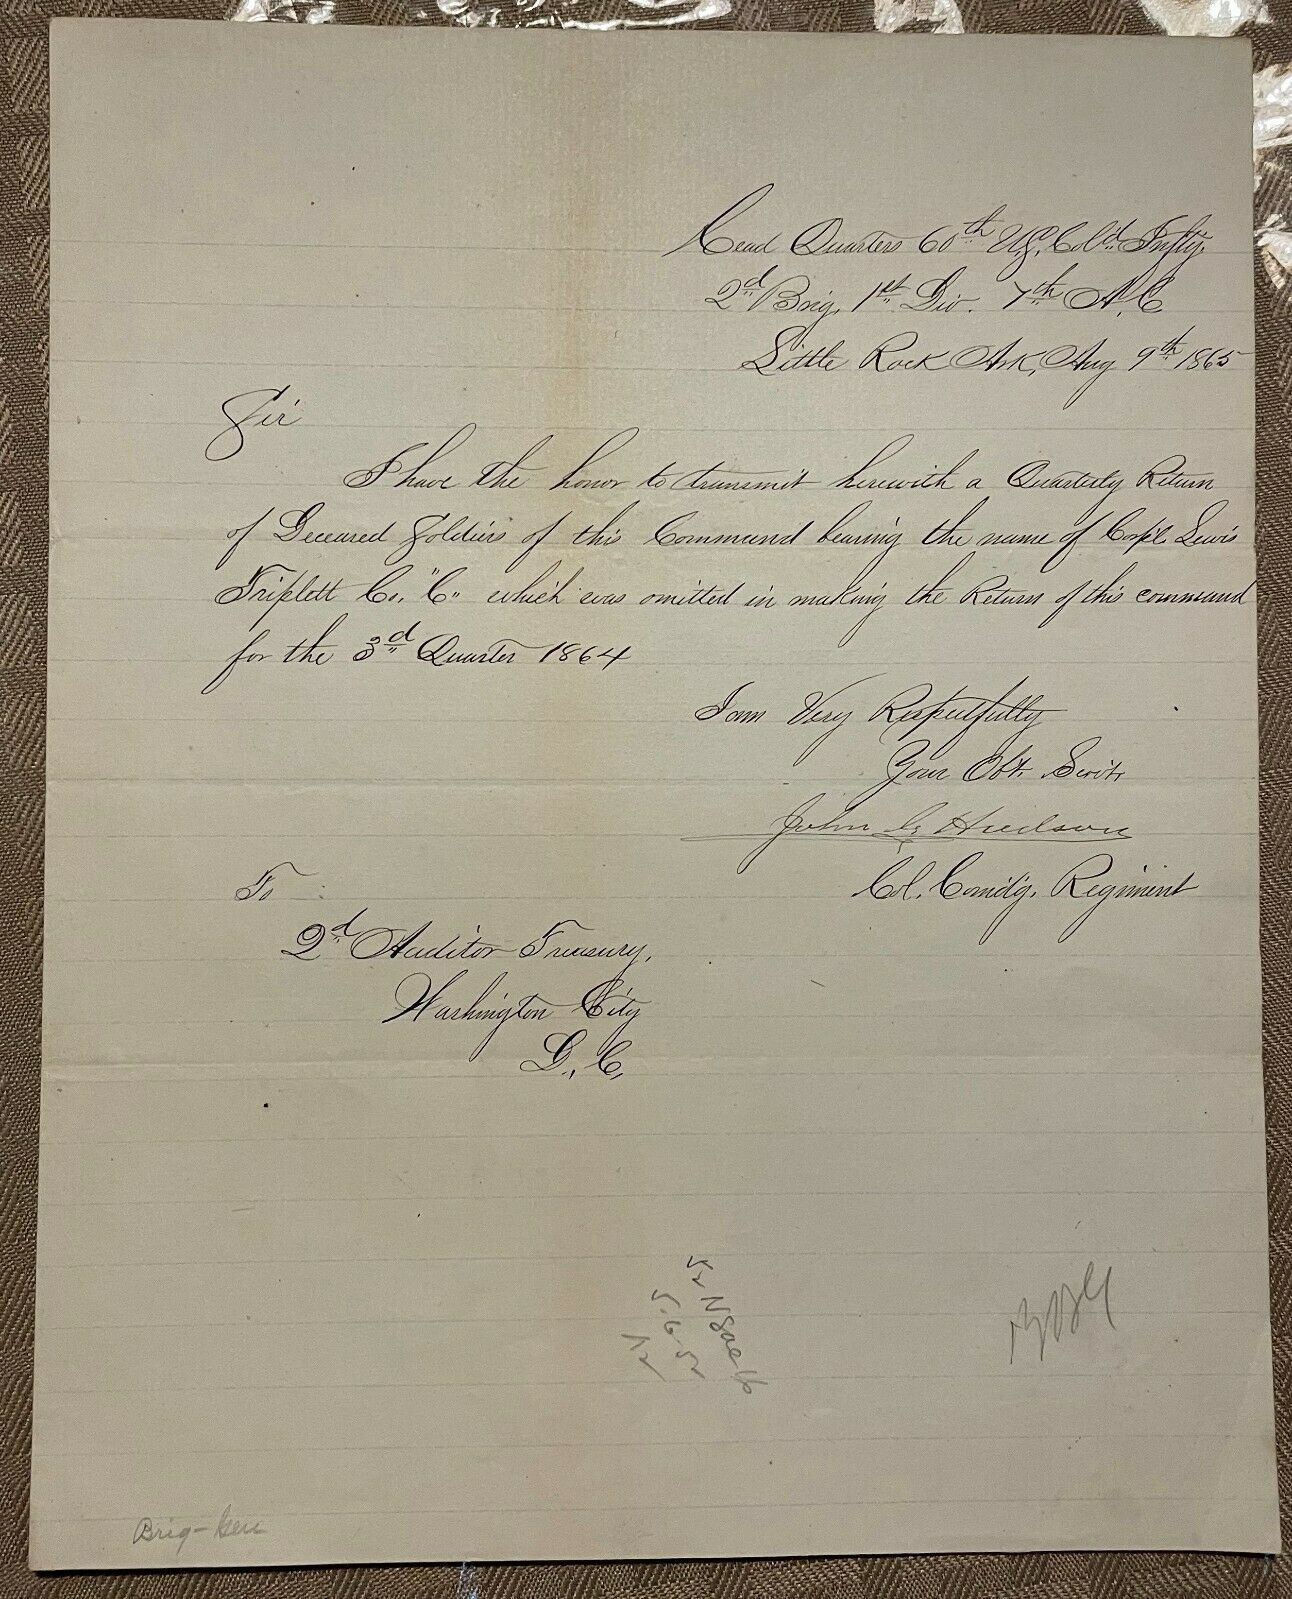 Head Quarters 60th U.S. Col'd Infty.
2d Brig, 1st Div. 7th A.C
Little Rock Ark, Aug 9th 1865
Sir
I have the honor to transmit herewith a Quarterly Return
of Deceased Soldiers of this Command bearing the name of Corpl Lewis
Triplett Co. "C" which was omitted in making the Return of this command
for the 3d Quarter 1864
I am Very Respectfully
Your Obt. Servt,
John G Hudson
Col. Comd'g. Regiment
To
2d Auditor Treasury,
Washington City
D. C,
5.6.52
Brig-Gen